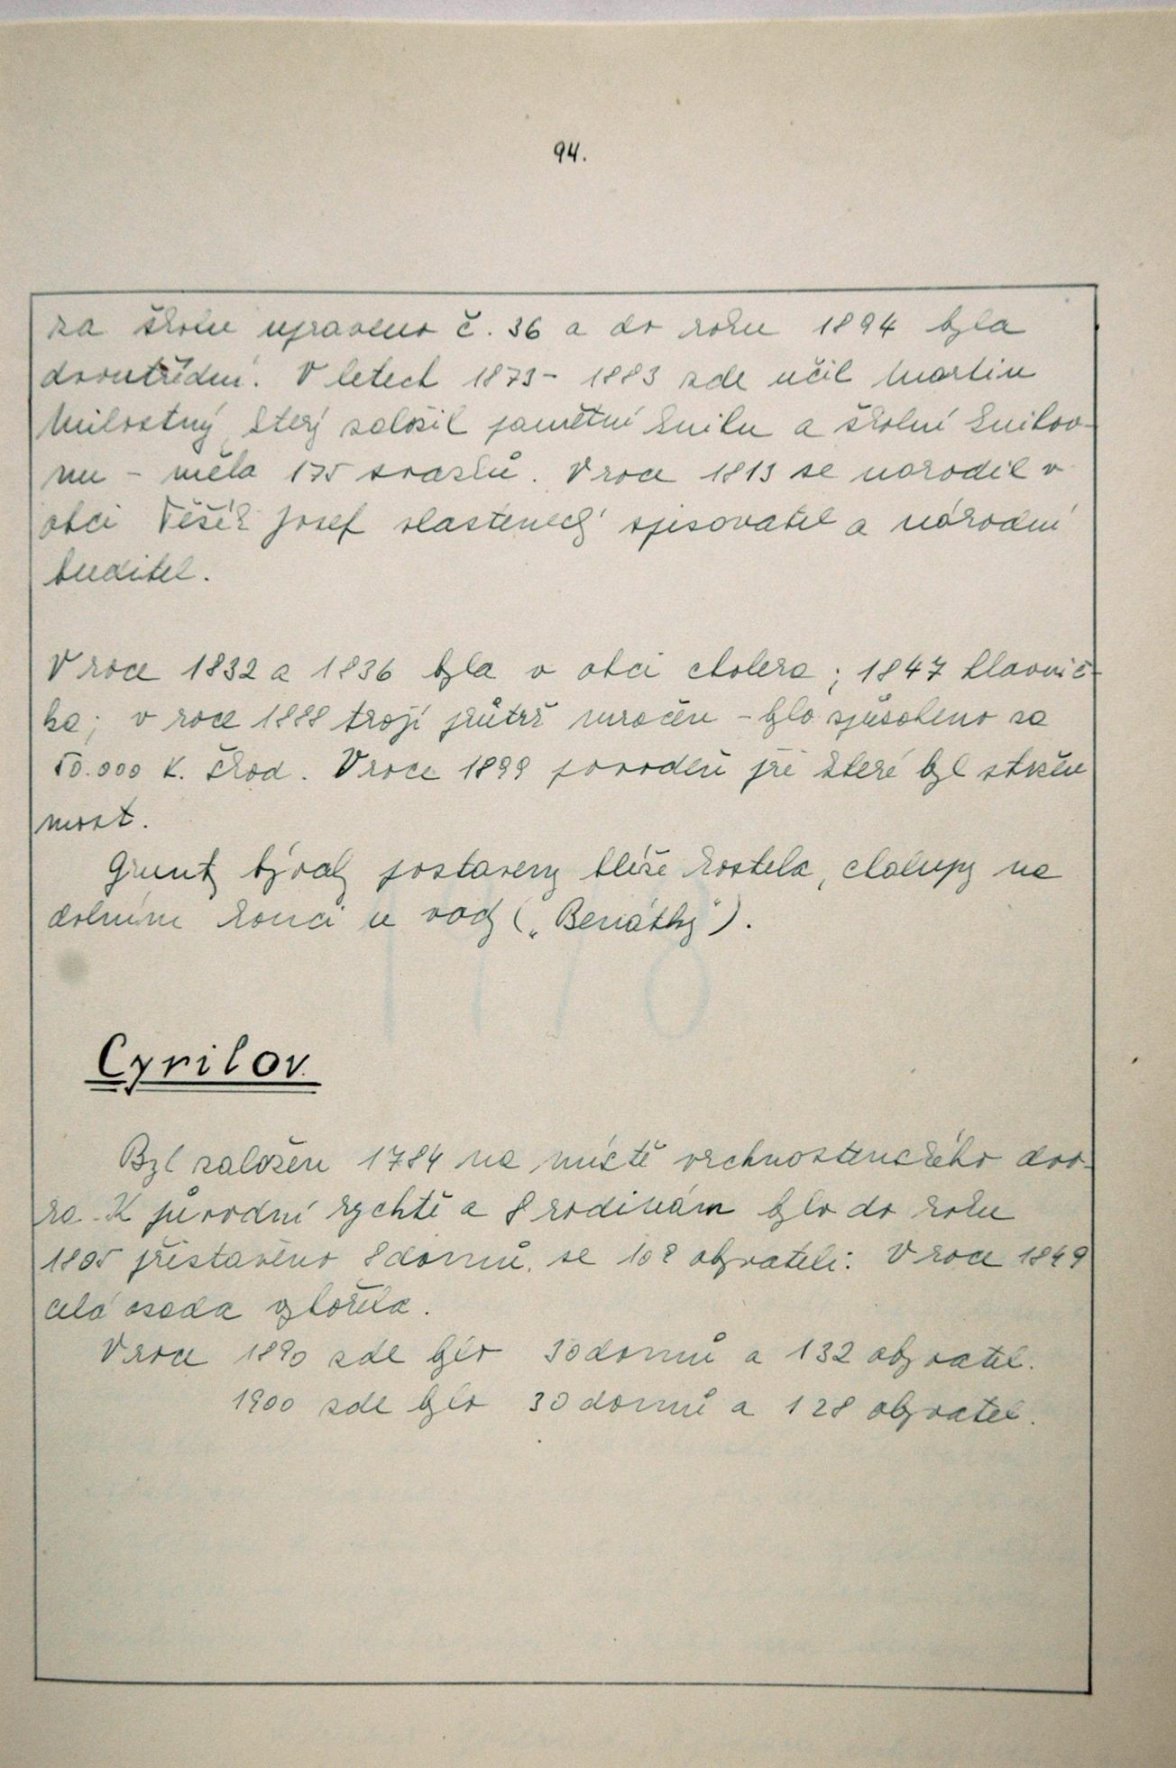 94.
za školu upraveno č. 36 a do roku 1894 byla
dvoutřídní. V letech 1873 - 1883 zde učil Martin
Milostný, který založil pamětní knihu a školní knihov-
nu - měla 175 svazků. V roce 1813 se narodil v
obci Těšík Josef vlastenecký spisovatel a národní
buditel.
V roce 1832 a 1836 byla v obci cholera; 1847 hlavnič-
ka; v roce 1888 trojí průtrž mračen - bylo způsobeno za
50.000 K. škod. V roce 1899 povodeň při které byl stržen
most.
Grunty bývaly postaveny blíže kostela, chalupy na
dolním konci u vody („Benátky").
Cyrilov
Byl založen 1784 na místě vrchnostenského dvo-
ra. K původní rychtě a 8 rodinám bylo do roku
1805 přistavěno 8 domů, se 102 obyvateli. V roce 1849
celá osada vyhořela.
V roce 1890 zde bylo 30 domů a 132 obyvatel.
1900 zde bylo 30 domů a 128 obyvatel.